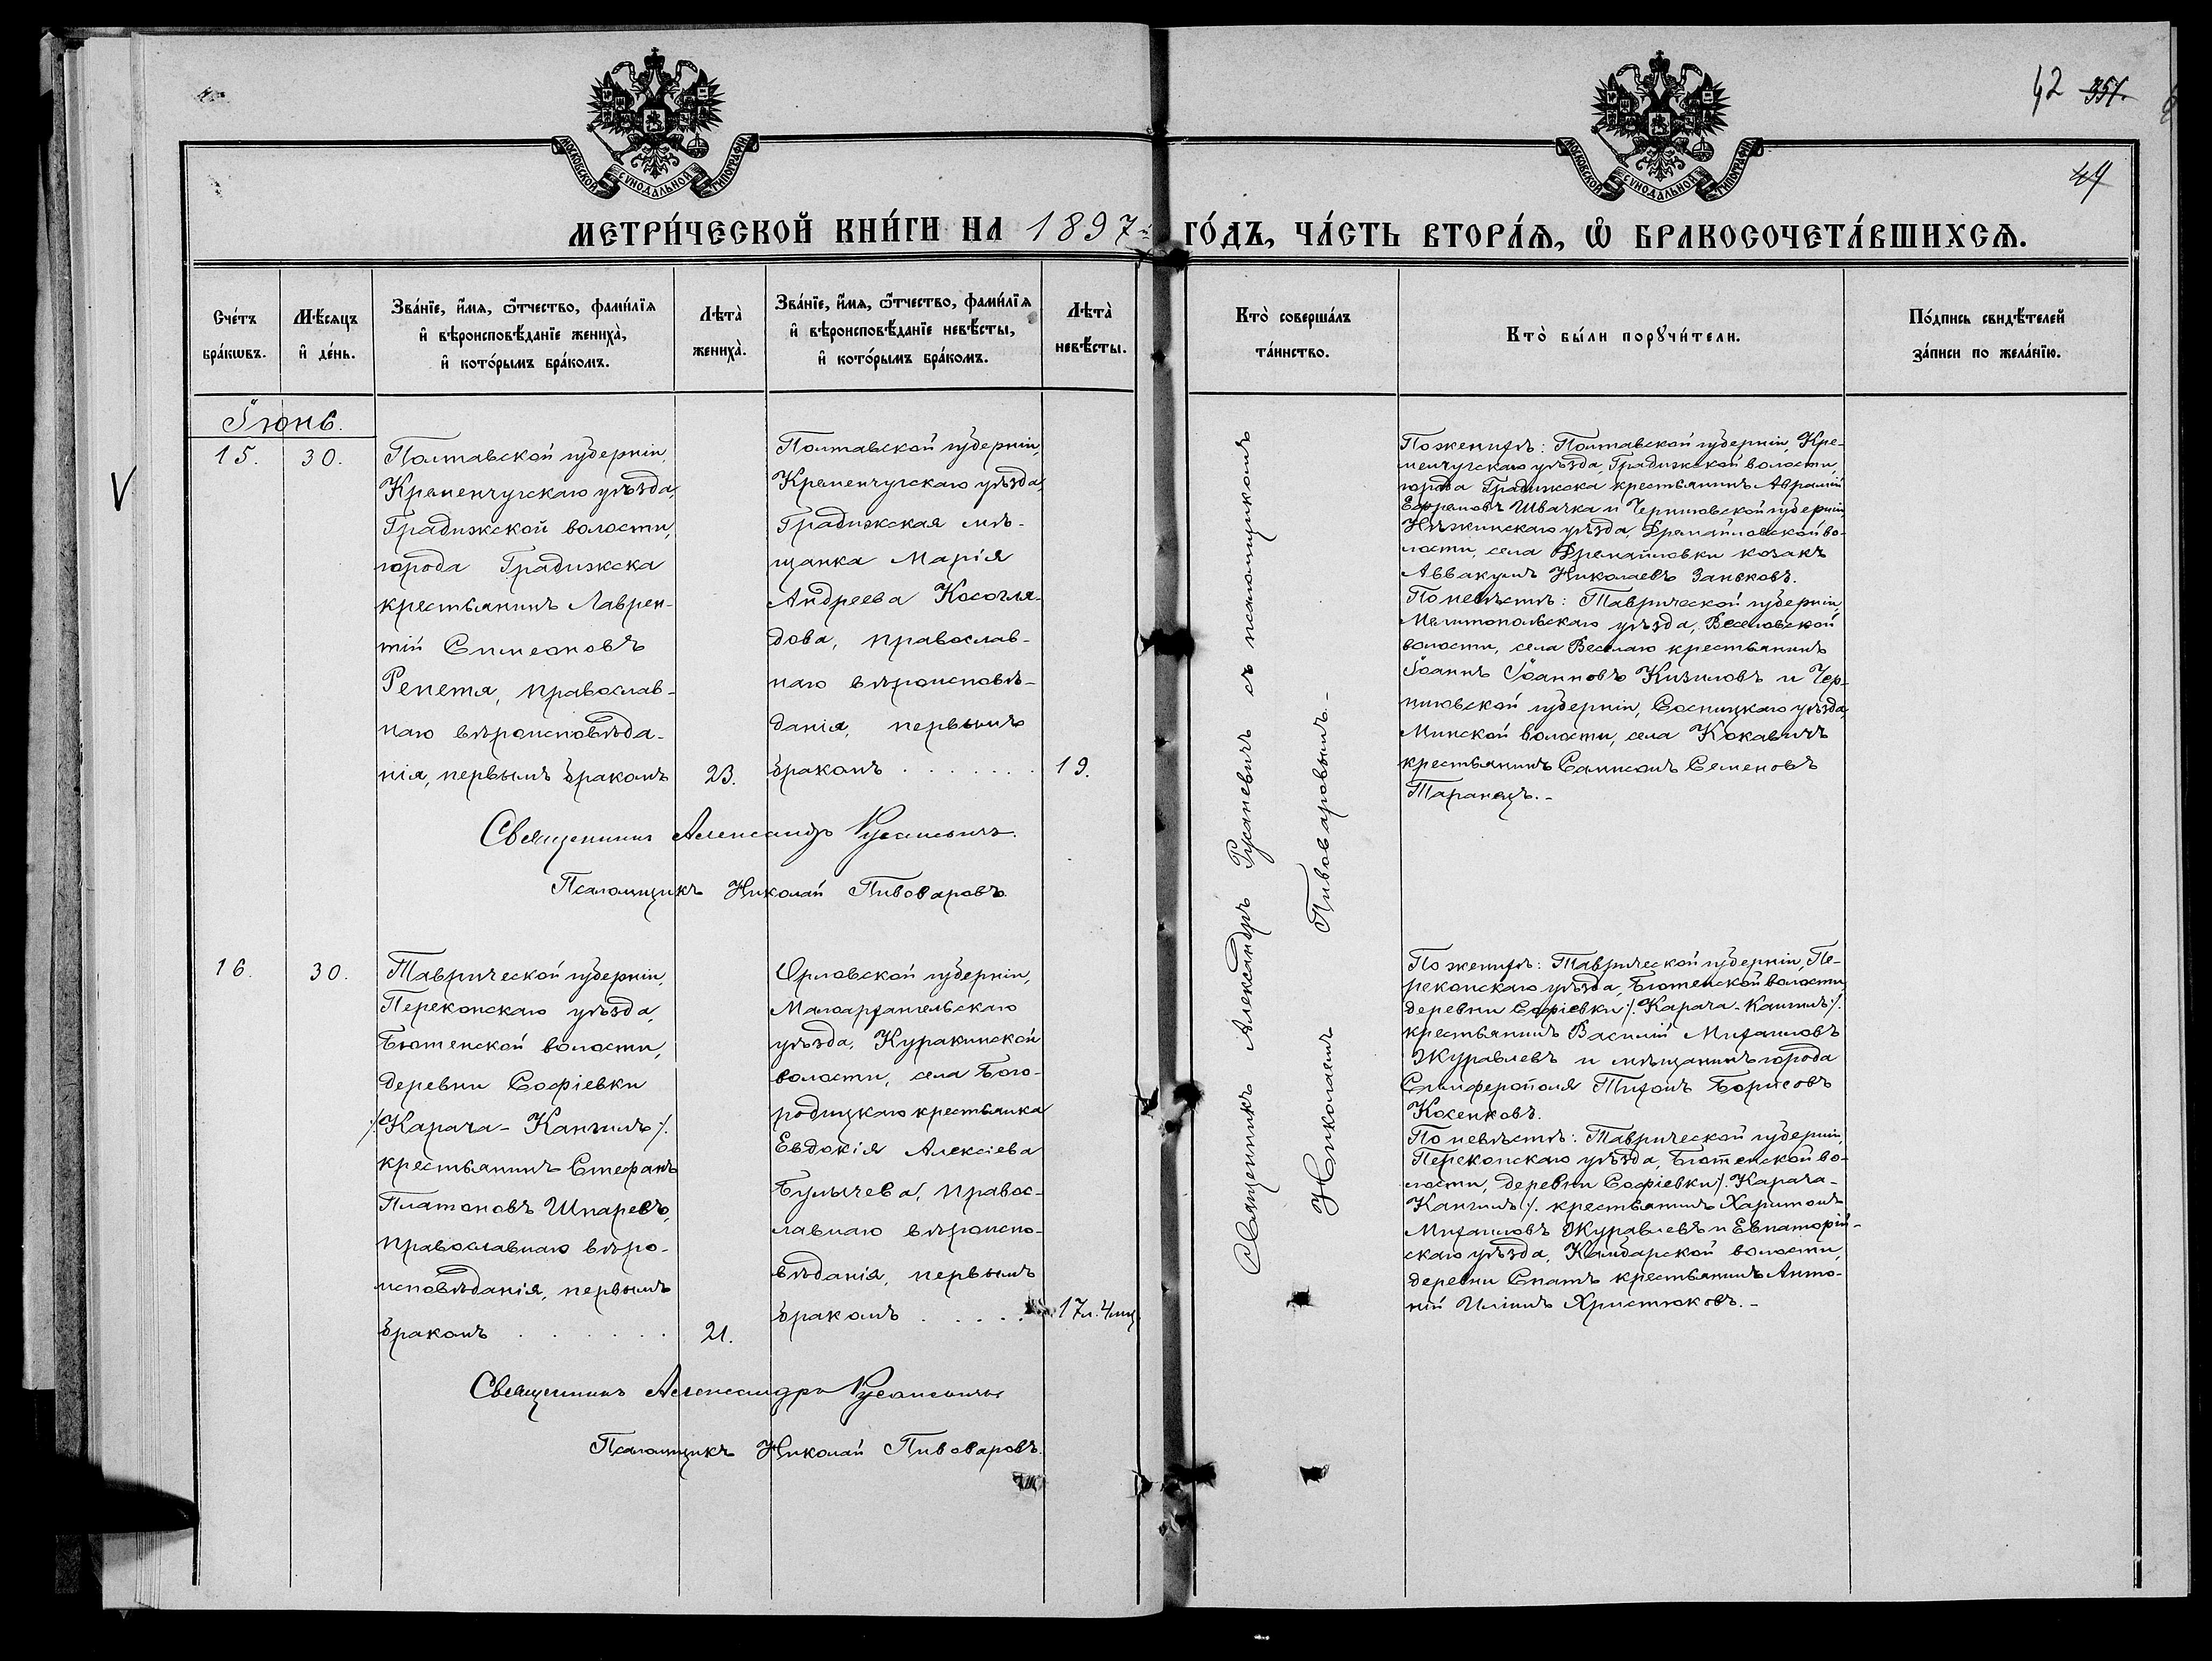 42 351.
49
МОСКОВСКОЙ СѴНОДАЛЬНОЙ ТИПОГРАФІИ
МОСКОВСКОЙ СѴНОДАЛЬНОЙ ТИПОГРАФІИ
МЕТРИ́ЧЕСКОЙ КНИ́ГИ НА 1897 й ГО́ДЪ, ЧА́СТЬ ВТОРА́Ѧ, Ѽ БРАКОСОЧЕТА́ВШИХСѦ.
Сче́тъ
бра́кѡвъ.
Мѣ́сяцъ
и҆ де́нь.
Зва́нїе, и҆́мя, ѻ҆́тчество, фами́лїя
и҆ вѣроисповѣ́данїе жениха̀,
и҆ кото́рымъ бра́комъ.
Лѣта̀
жениха̀.
Зва́нїе, и҆́мя, ѻ҆́тчество, фами́лїя
и҆ вѣроисповѣ́данїе невѣ́сты,
и҆ кото́рымъ бра́комъ.
Лѣта̀
невѣ́сты.
Кто̀ соверша́лъ
та́инство.
Кто̀ бы́ли порꙋчи́тели.
По́дпись свидѣ́телей
за́писи по жела́нїю.
Іюнь.
V
15.
30.
Полтавской губерніи,
Кременчугскаго уѣзда,
Градижской волости,
города Градижска
крестьянинъ Лаврен-
тій Симеоновъ
Репета, православ-
наго вѣроисповѣда-
нія, первымъ бракомъ
23.
Полтавской губерніи,
Кременчугскаго уѣзда,
Градижская мѣ-
щанка Марія
Андреева Косогля-
дова, православ-
наго вѣроисповѣ-
данія, первымъ
бракомъ . . . . . . .
19.
Священникъ Александръ Русаневичъ.
Псаломщикъ Николай Пивоваровъ.
Священникъ Александръ Русаневичъ съ псаломщикомъ
Николаемъ Пивоваровымъ.-
По женихѣ: Полтавской губерніи, Кре-
менчугскаго уѣзда, Градижской волости,
города Градижска крестьянинъ Аврамій
Ефремовъ Швачка и Черниговской губерніи,
Нѣжинскаго уѣзда, Дремайловской во-
лости, села Дремайловки козакъ
Аввакумъ Николаевъ Заньковъ.
По невѣстѣ: Таврической губерніи,
Мелитопольскаго уѣзда, Веселовской
волости, села Веселаго крестьянинъ
Іоаннъ Іоанновъ Кизиловъ и Чер-
ниговской губерніи, Сосницкаго уѣзда,
Минской волости, села Кокавичъ
крестьянинъ Сампсонъ Семеновъ
Таранецъ.-
16.
30.
Таврической губерніи,
Перекопскаго уѣзда,
Бютенской волости,
деревни Софіевки
/:Карача-Кангилъ:/.
крестьянинъ Стефанъ
Платоновъ Шпаревъ,
православнаго вѣро-
исповѣданія, первымъ
бракомъ . . . . . . .
21.
Орловской губерніи,
Малоархангельскаго
уѣзда, Куракинской
волости, села Бого-
родицкаго крестьянка
Евдокія Алексіева
Булычева, правос-
лавнаго вѣроиспо-
вѣданія, первымъ
бракомъ . . . . .
17 л. 4 мц.
Священникъ Александръ Русаневичъ
Псаломщикъ Николай Пивоваровъ.
По женихѣ: Таврической губерніи, Пе-
рекопскаго уѣзда, Бютенской волости,
деревни Софіевки /:Карача-Кангилъ:/.
крестьянинъ Василій Михаиловъ
Журавлевъ и мѣщанинъ города
Симферополя Тихонъ Борисовъ
Косенковъ.
По невѣстѣ: Таврической губерніи,
Перекопскаго уѣзда, Бютенской во-
лости, деревни Софіевки /:Карача-
Кангилъ:/. крестьянинъ Харитонъ
Михаиловъ Журавлевъ и Евпаторій-
скаго уѣзда, Камбарской волости,
деревни Спатъ крестьянинъ Анто-
ній Иліинъ Христюковъ.-